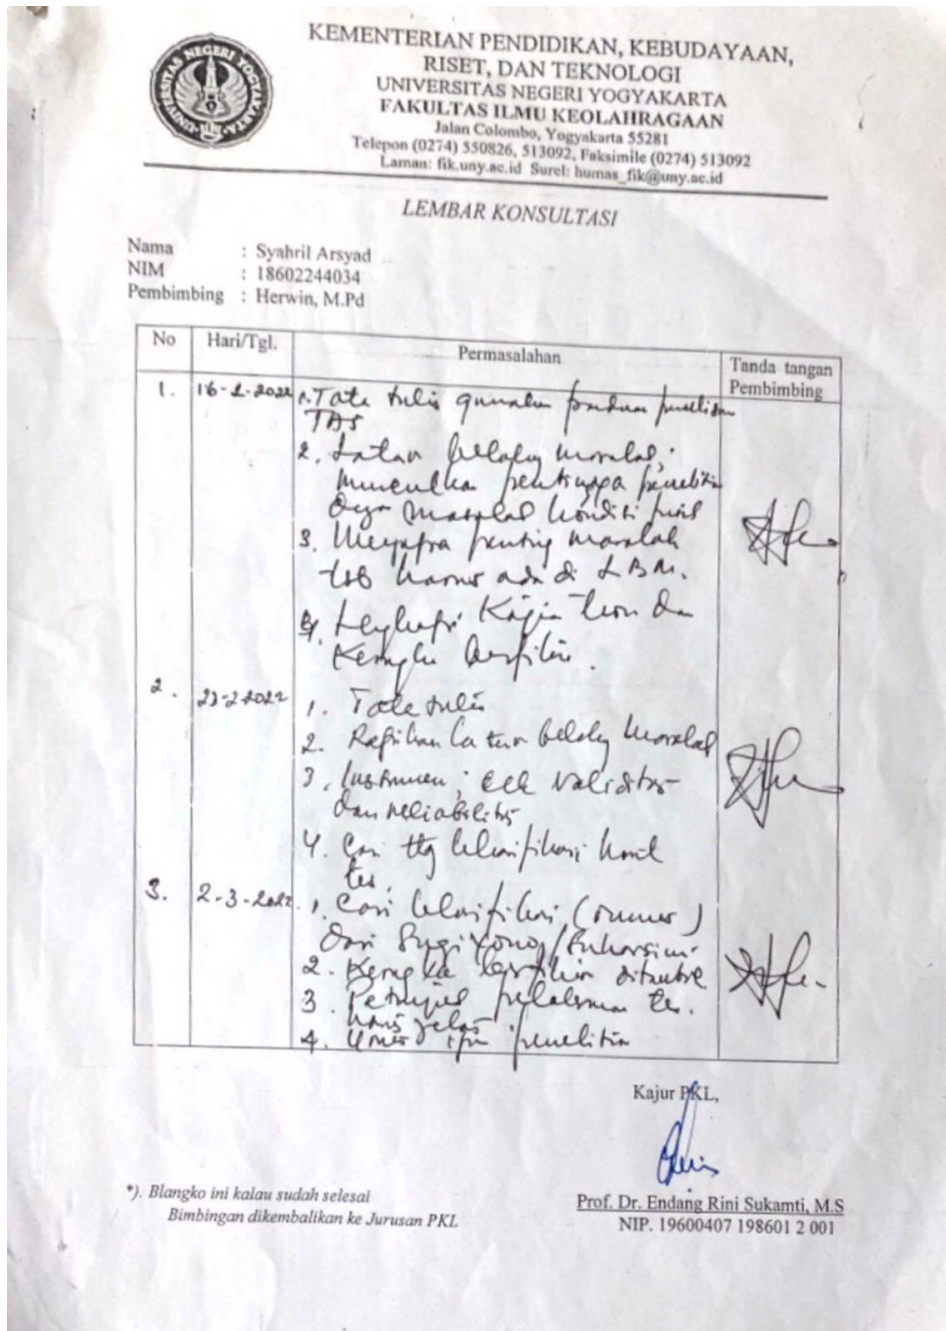 UNIVERSITAS NEGERI YOGYAKARTA
KEMENTERIAN PENDIDIKAN, KEBUDAYAAN,
RISET, DAN TEKNOLOGI
UNIVERSITAS NEGERI YOGYAKARTA
FAKULTAS ILMU KEOLAHRAGAAN
Jalan Colombo, Yogyakarta 55281
Telepon (0274) 550826, 513092, Faksimile (0274) 513092
Laman: fik.uny.ac.id Surel: humas_fik@uny.ac.id
LEMBAR KONSULTASI
Nama : Syahril Arsyad
NIM : 18602244034
Pembimbing : Herwin, M.Pd
No Hari/Tgl. Permasalahan Tanda tangan
Pembimbing
1. 16-2-2022 1. Tata tulis gunakan panduan
TAS
2. Latar belakang masalah,
munculkan pentingnya penelitian
masalah kondisi fisik
3. Mengapa penting masalah
tsb harus ada di LBM.
4. Lengkapi Kajian teori dan
Kerangka berfikir.
2. 2022 1. Tata tulis
2. latar belakang masalah
3. Instrumen, cek validitas
dan reliabilitas
4. Cari ttg klasifikasi hasil
tes.
3. 2-3-2022. 1. Cari klasifikasi (rumus)
dari Sugiyono/Suharsimi
2. Kerangka berfikir
3. Petunjuk pelaksanaan tes.
harus jelas
4. penelitian
Kajur PKL,
*). Blangko ini kalau sudah selesai
Bimbingan dikembalikan ke Jurusan PKL
Prof. Dr. Endang Rini Sukamti, M.S
NIP. 19600407 198601 2 001